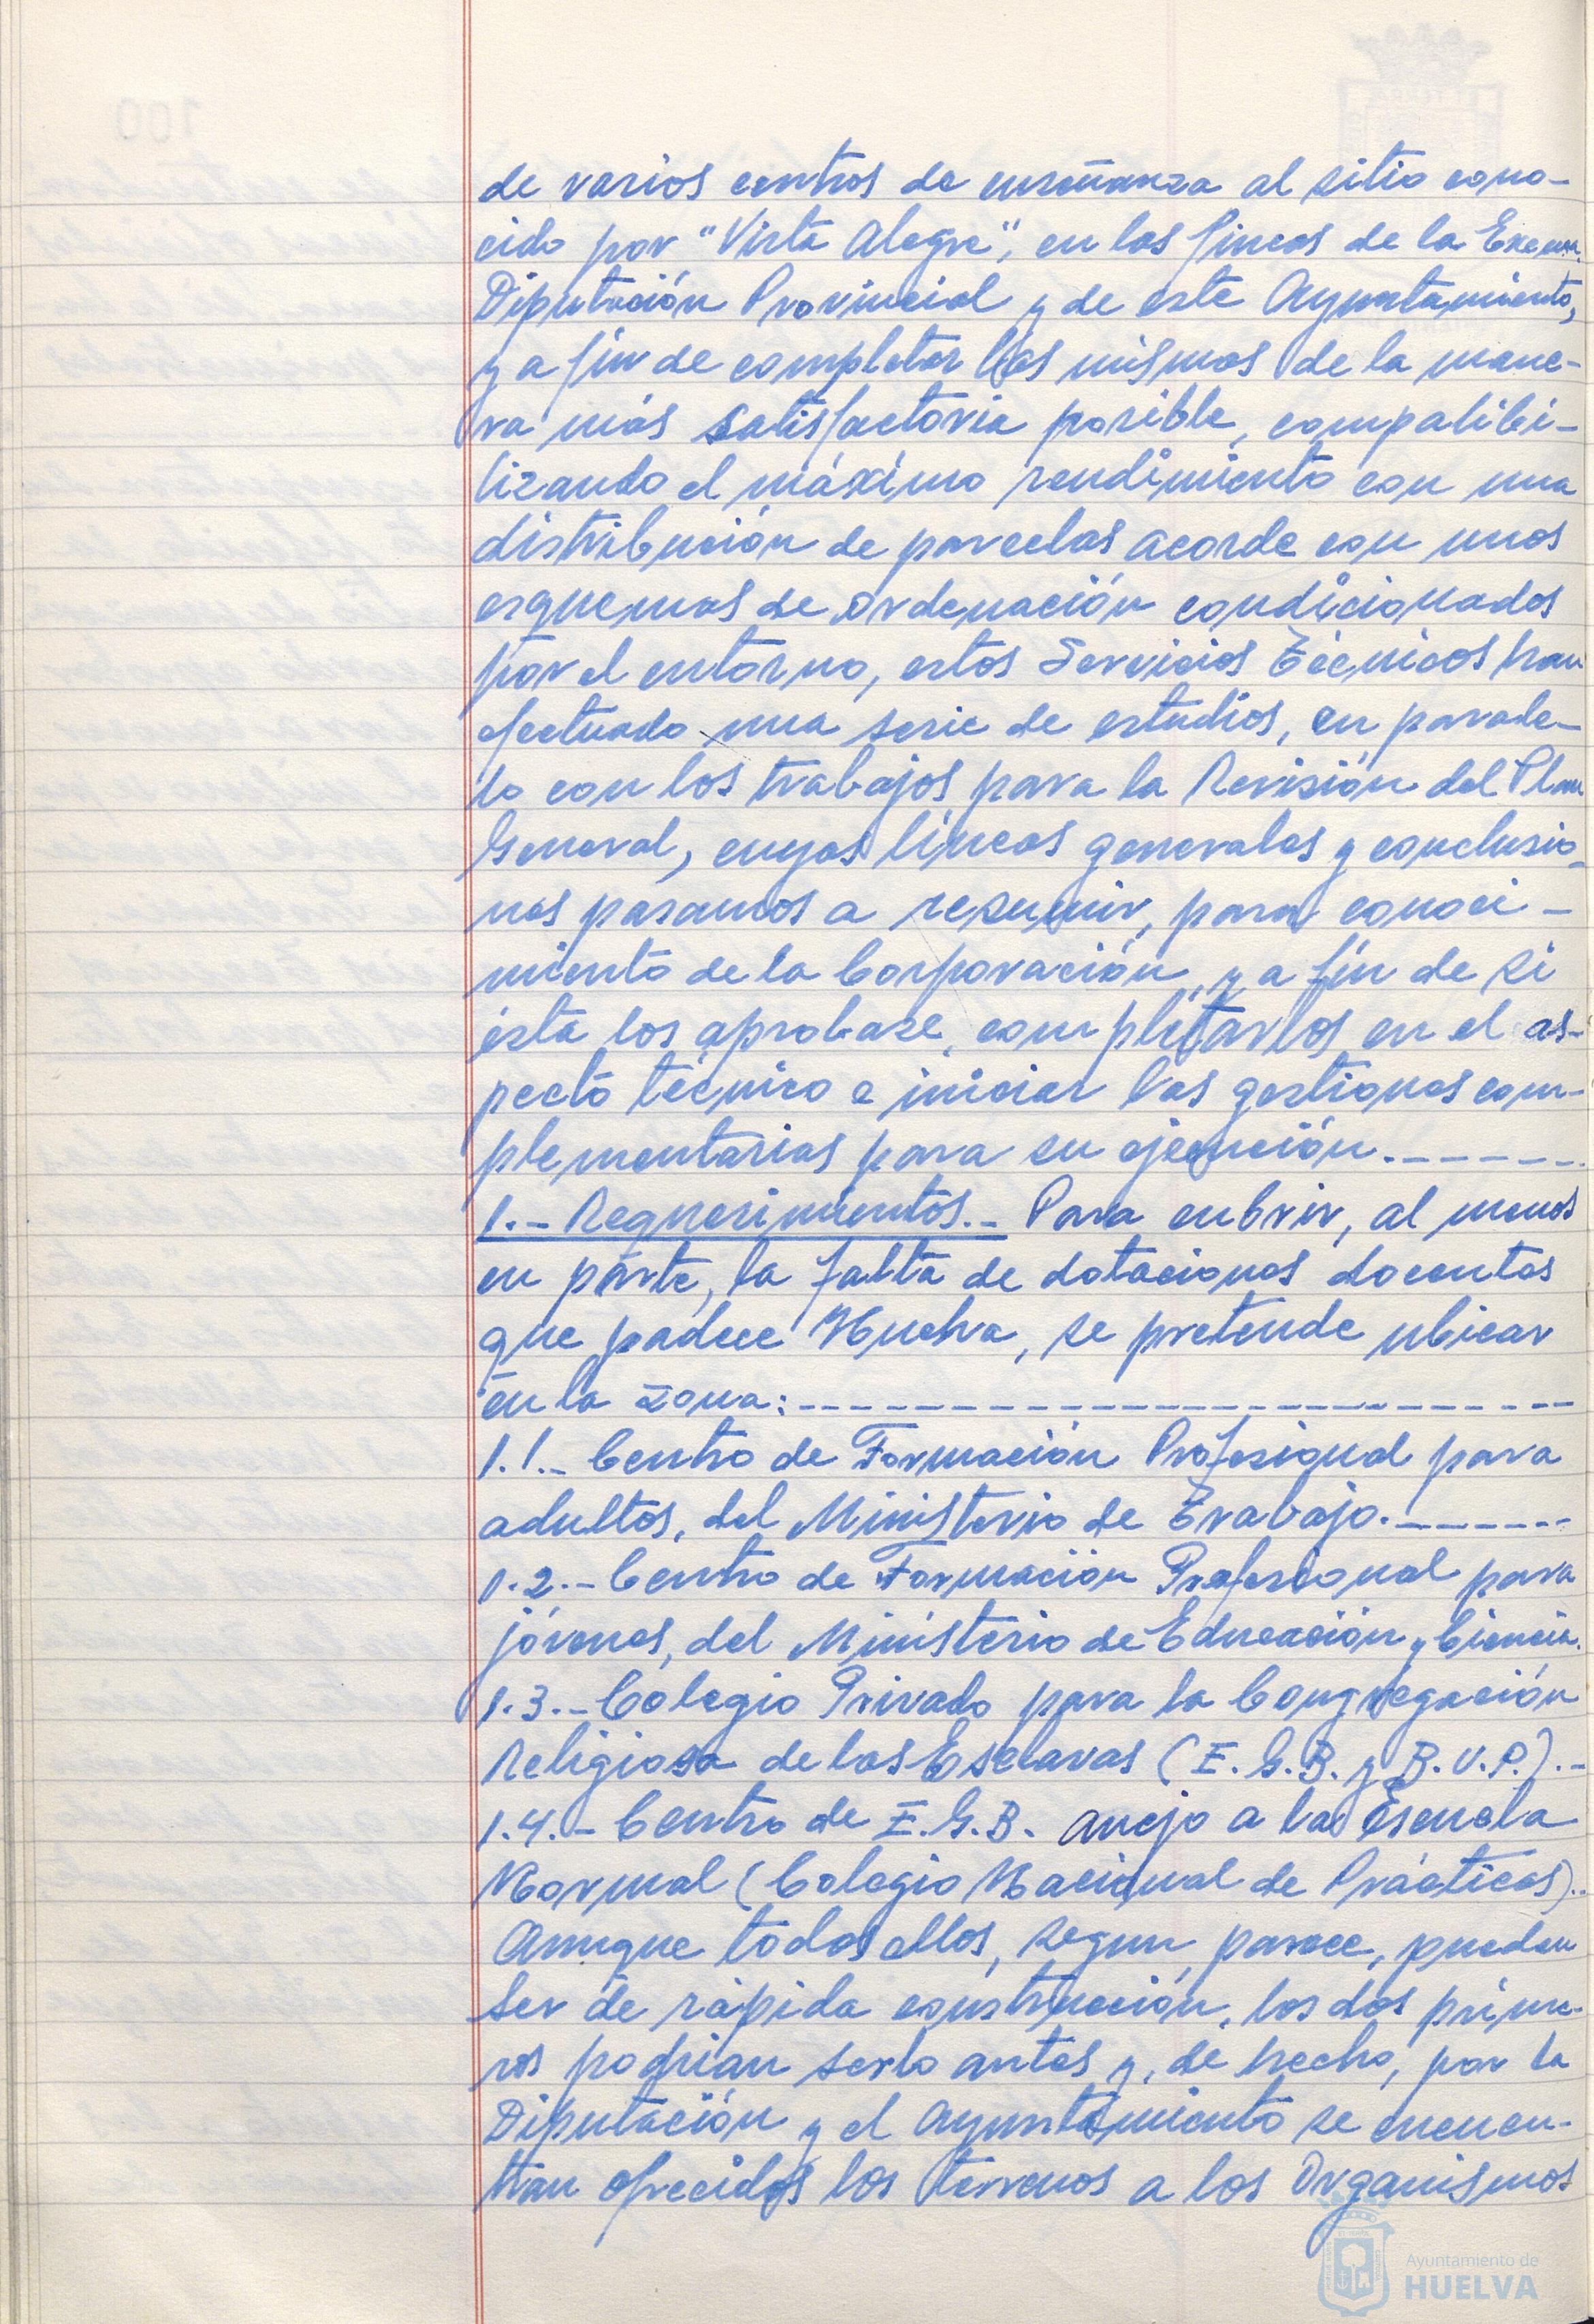 de varios centros de enseñanza al sitio cono-
cido por "Vista Alegre", en las fincas de la Excma.
Diputación Provincial y de este Ayuntamiento,
y a fin de completar los mismos de la mane-
ra más satisfactoria posible, compatibi-
lizando el máximo rendimiento con una
distribución de parcelas acorde con unos
esquemas de ordenación condicionados
por el entorno, estos Servicios Técnicos han
efectuado una serie de estudios, en parale-
lo con los trabajos para la Revisión del Plan
General, cuyas líneas generales y conclusio-
nes pasamos a resumir, para conoci-
miento de la Corporación, y a fin de si
ésta los aprobase, completarlos en el as-
pecto técnico e iniciar las gestiones com-
plementarias para su ejecución.------
1.- Requerimientos.- Para cubrir, al menos
en parte, la falta de dotaciones docentes
que padece Huelva, se pretende ubicar
en la zona:--------------------
1.1.- Centro de Formación Profesional para
adultos, del Ministerio de Trabajo.------
1.2.- Centro de Formación Profesional para
jóvenes, del Ministerio de Educación y Ciencia.
1.3.- Colegio Privado para la Congregación
Religiosa de las Esclavas (E.G.B. y B.U.P.).-
1.4.- Centro de E.G.B. anejo a la Escuela
Normal (Colegio Nacional de Prácticas)..
Aunque todos ellos, segun parece, pueden
ser de rápida construcción, los dos prime-
ros podrian serlo antes y, de hecho, por la
Diputación y el Ayuntamiento se encuen-
tran ofrecidos los terrenos a los Organismos
Ayuntamiento de
HUELVA